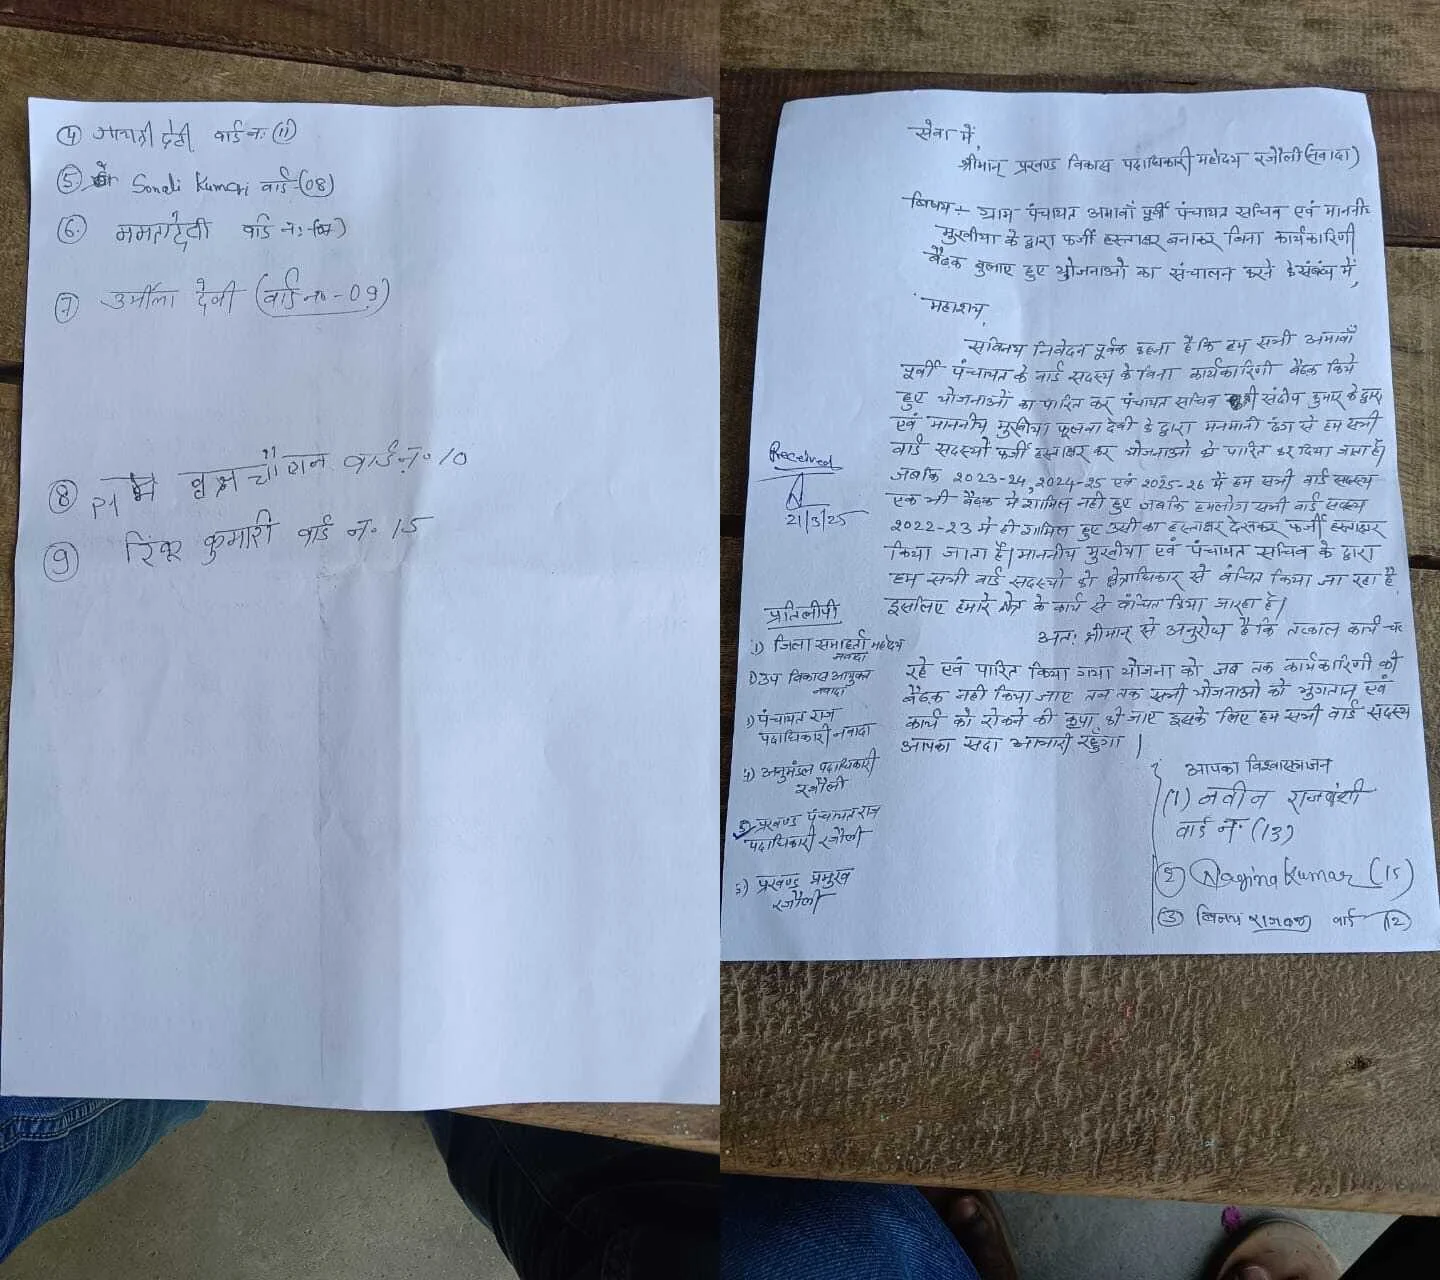 सेवा में,
श्रीमान् प्रखण्ड विकास पदाधिकारी महोदय रजौली (नवादा)
विषय ÷ ग्राम पंचायत अमावाँ पूर्वी पंचायत सचिव एवं माननीय
मुखीया के द्वारा फर्जी हस्ताक्षर बनाकर बिना कार्यकारिणी
बैठक बुलाए हुए योजनाओं का संचालन करने के संबंध में,
महाशय,
सविनय निवेदन पूर्वक कहना है कि हम सभी अमावाँ
पूर्वी पंचायत के वार्ड सदस्य के बिना कार्यकारिणी बैठक किये
हुए योजनाओं का पारित कर पंचायत सचिव श्री संदीप कुमार के द्वारा
एवं माननीय मुखीया फूलवा देवी के द्वारा मनमानी ढंग से हम सभी
वार्ड सदस्यों फर्जी हस्ताक्षर कर योजनाओं को पारित कर दिया जाता है।
जबकि 2023-24, 2024-25 एवं 2025-26 में हम सभी वार्ड सदस्य
एक भी बैठक में शामिल नहीं हुए जबकि हमलोग सभी वार्ड सदस्य
2022-23 में ही शामिल हुए उसी का हस्ताक्षर देखकर फर्जी हस्ताक्षर
किया जाता है। माननीय मुखीया एवं पंचायत सचिव के द्वारा
हम सभी वार्ड सदस्यो को क्षेत्राधिकार से वंचित किया जा रहा है
इसलिए हमारे क्षेत्र के कार्य से वंचित किया जा रहा है।
अतः श्रीमान् से अनुरोध है कि तत्काल कार्य चल
रहे एवं पारित किया गया योजना को जब तक कार्यकारिणी की
बैठक नहीं किया जाए तब तक सभी योजनाओं को भुगतान एवं
कार्य को रोकने की कृपा की जाए इसके लिए हम सभी वार्ड सदस्य
आपका सदा आभारी रहूँगा।
Received
21/3/25
प्रतिलीपी
1) जिला समाहर्ता महोदय
नवादा
उप विकास आयुक्त
नवादा
पंचायत राज
पदाधिकारी नवादा
4) अनुमंडल पदाधिकारी
रजौली
5) प्रखण्ड पंचायत राज
पदाधिकारी रजौली
प्रखण्ड प्रमुख
रजौली
आपका विश्वासभाजन
(1) नवीन राजवंशी
वार्ड नं. (13)
(2) Nagina Kumar (15)
(3) विनय वार्ड (12)
(4) गायत्री देवी वार्ड नः (11)
(5) Sonali Kumari वार्ड-(08)
(6) ममता देवी वार्ड नः
(7) उर्मीला देवी (वार्ड नं-09)
(8) वार्ड नं. 10
(9) रिंकू कुमारी वार्ड नं. 15